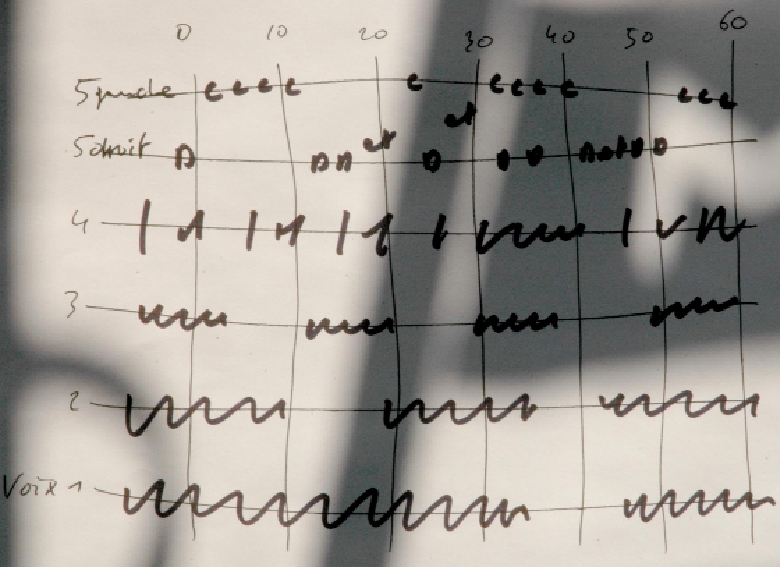 0 10 20 30 40 50 60
5 gauche c c c c c c c c c c c c
5 droit D D D et D et D D D
4
3
2
Voix 1